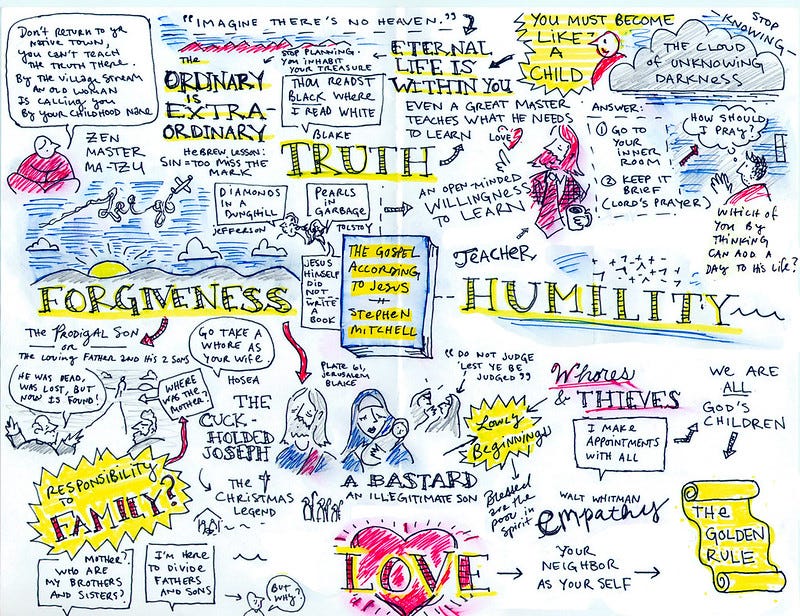 Don't return to yr
native town,
you can't teach
the truth there.
By the village stream
an old woman
is calling you
by your childhood name
Zen
Master
Ma-Tzu
"Imagine there's no heaven."
The
Ordinary
is
Extra-
ordinary
Stop planning.
you inhabit
your treasure
Thou readst
black where
I read white
Blake
Hebrew lesson:
Sin = too miss the
mark
Eternal
life is
within you
Even a great master
teaches what he needs
to learn
You must become
like?
a
child
Stop
knowing
The cloud
of unknowing
darkness
Answer:
① Go to
your
inner
room
② Keep it
brief
(Lord's Prayer)
How should
I pray?
Which of
you by
thinking
can add a
day to his life?
Truth
Love
An open-minded
willingness
to learn
Diamonds
in a
dunghill
Jefferson
Pearls
in
garbage
Tolstoy
Jesus
himself
did
not
write
a
book
The Gospel
According
to Jesus
Stephen
Mitchell
Teacher
Forgiveness
Humility
The Prodigal Son
or
The Loving Father and his 2 sons
He was dead,
was lost, but
now is found!
Where
was the
mother?
Go take a
whore as
your wife.
Hosea
The
Cuck-
holded
Joseph
The
Christmas
Legend
Plate 61,
Jerusalem
Blake
A Bastard
An illegitimate son
"Do not judge
lest ye be
judged"
Lowly
Beginnings
Blessed
are the
poor in
spirit
Whores
& Thieves
I make
appointments
with all
Walt Whitman
empathy
We are
all
God's
children
The
Golden
Rule
Responsibility
to
Family?
Mother?
Who are
my brothers
and sisters?
I'm here
to divide
fathers
and sons
But
why?
Love
Your
neighbor
as your self